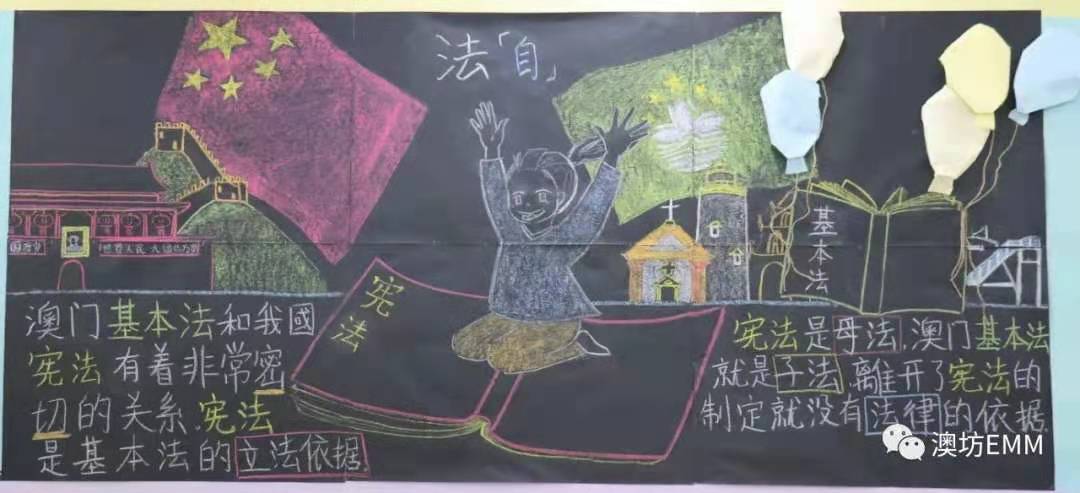 法「自」
宪法
基本法
澳门基本法和我國
宪法有着非常密
切的关系.宪法
是基本法的立法依据.
宪法是母法,澳门基本法
就是子法,離开了宪法的
制定就没有法律的依据.
澳坊EMM